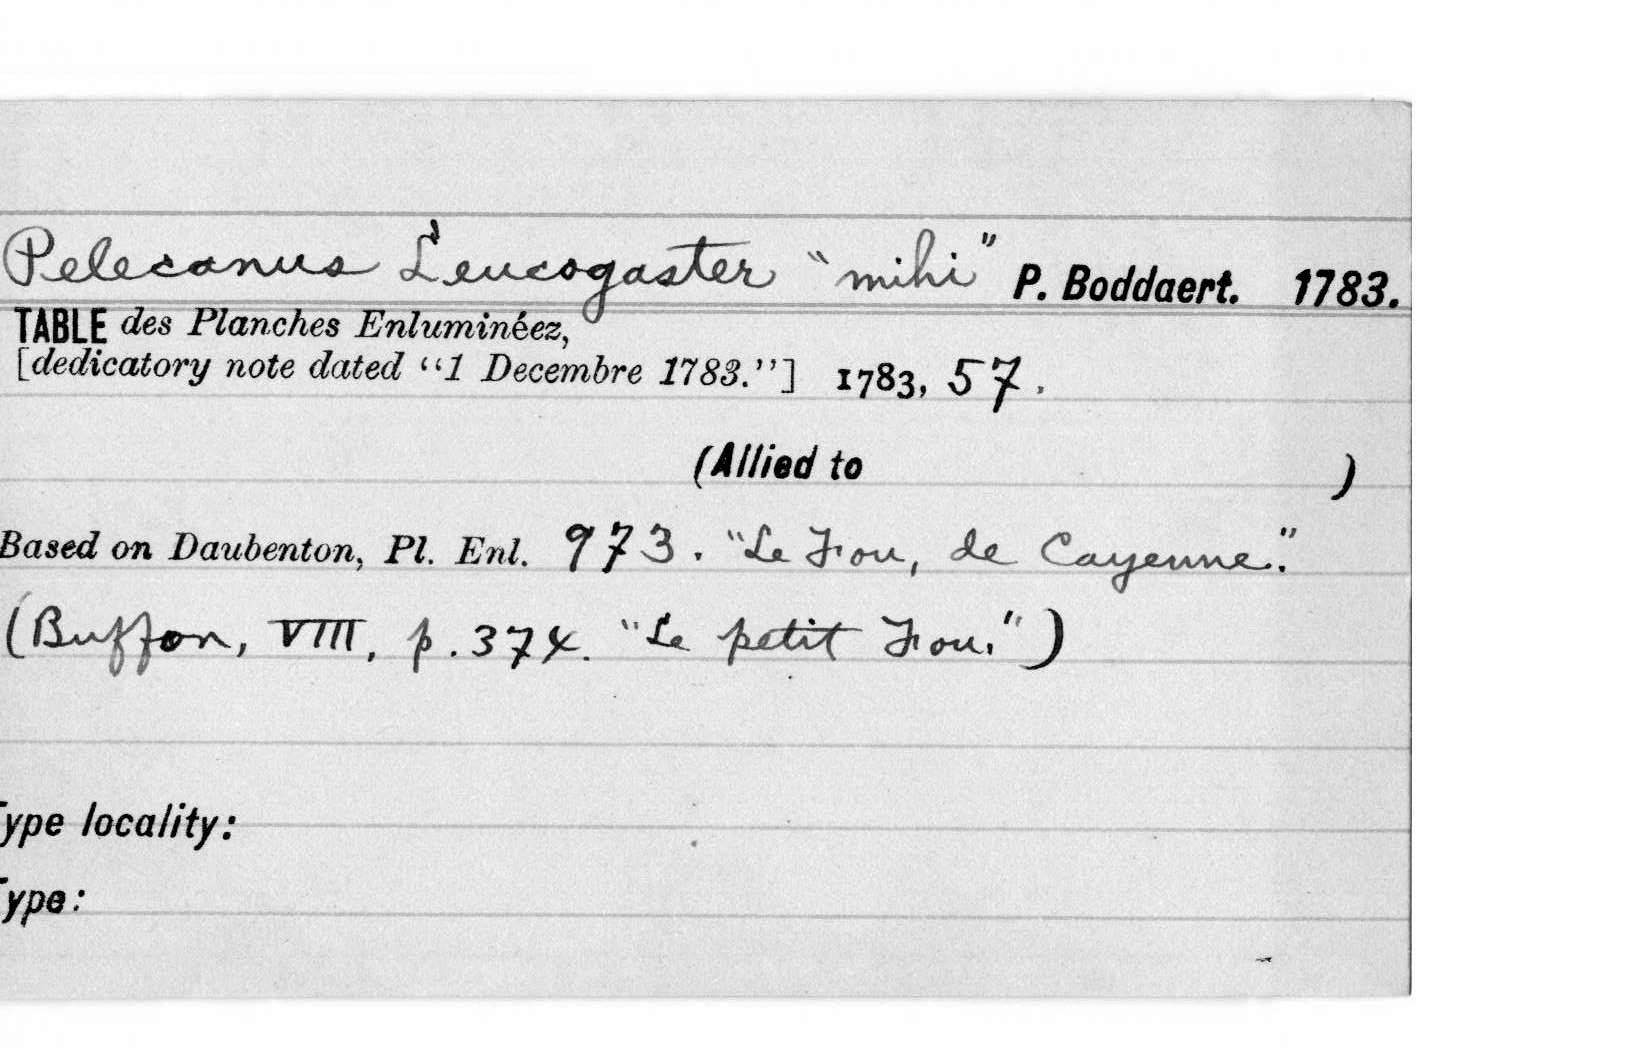 Pelecanus Leucogaster "mihi" P. Boddaert. 1783.
TABLE des Planches Enluminéez,
[dedicatory note dated "1 Decembre 1783."] 1783, 57.
(Allied to )
Based on Daubenton, Pl. Enl. 973. "Le Fou, de Cayenne."
(Buffon, VIII, p. 374. "Le petit Fou.")
Type locality:
Type: